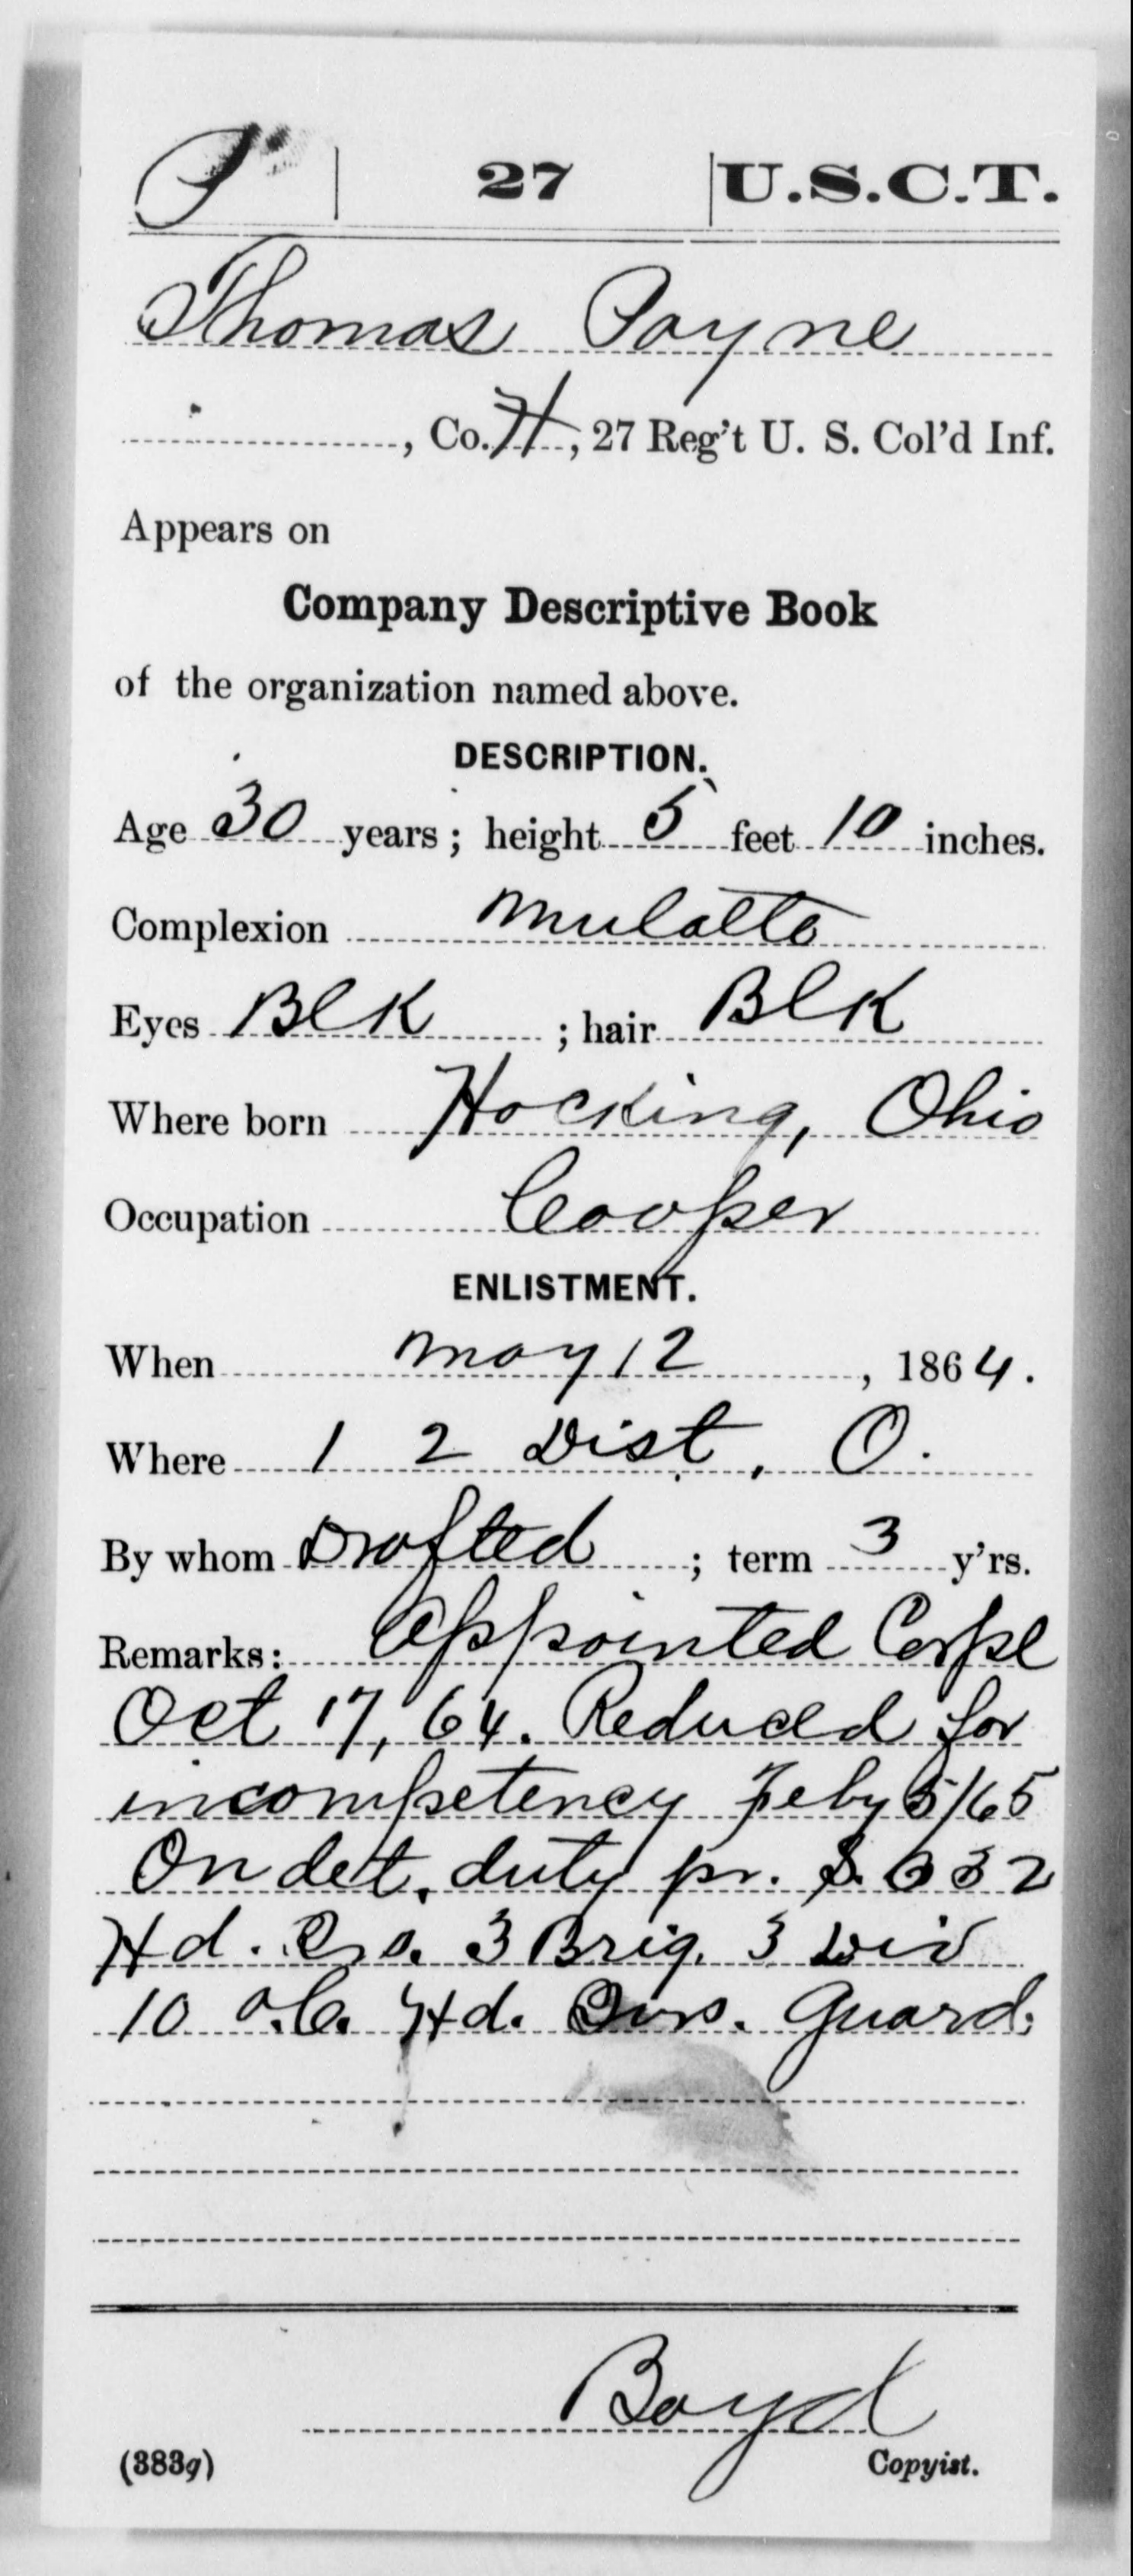 P | 27 | U.S.C.T.
Thomas Payne
, Co. H, 27 Reg't U. S. Col'd Inf.
Appears on
Company Descriptive Book
of the organization named above.
DESCRIPTION.
Age 30 years; height 5 feet 10 inches.
Complexion Mulatto
Eyes Blk ; hair Blk
Where born Hocking, Ohio
Occupation Cooper
ENLISTMENT.
When May 12, 1864.
Where 12 Dist, O.
By whom Drafted ; term 3 y'rs.
Remarks: Appointed Corpl
Oct 17, 64. Reduced for
incompetency Feby 5/65
On det. duty pr. 332
Hd. Qrs. 3 Brig. 3 Div
10 A.C. Hd. Qrs. Guard.
Boyd
(383g) Copyist.